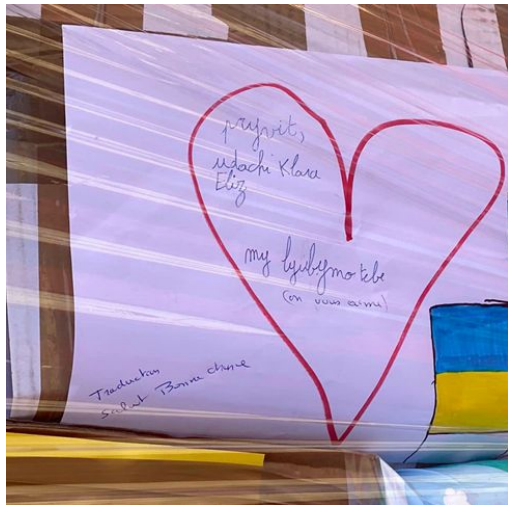 pryvit,
udachi Klara
Eliz
my lyubymo tebe
(on vous aime)
Traduction
Salut Bonne chance